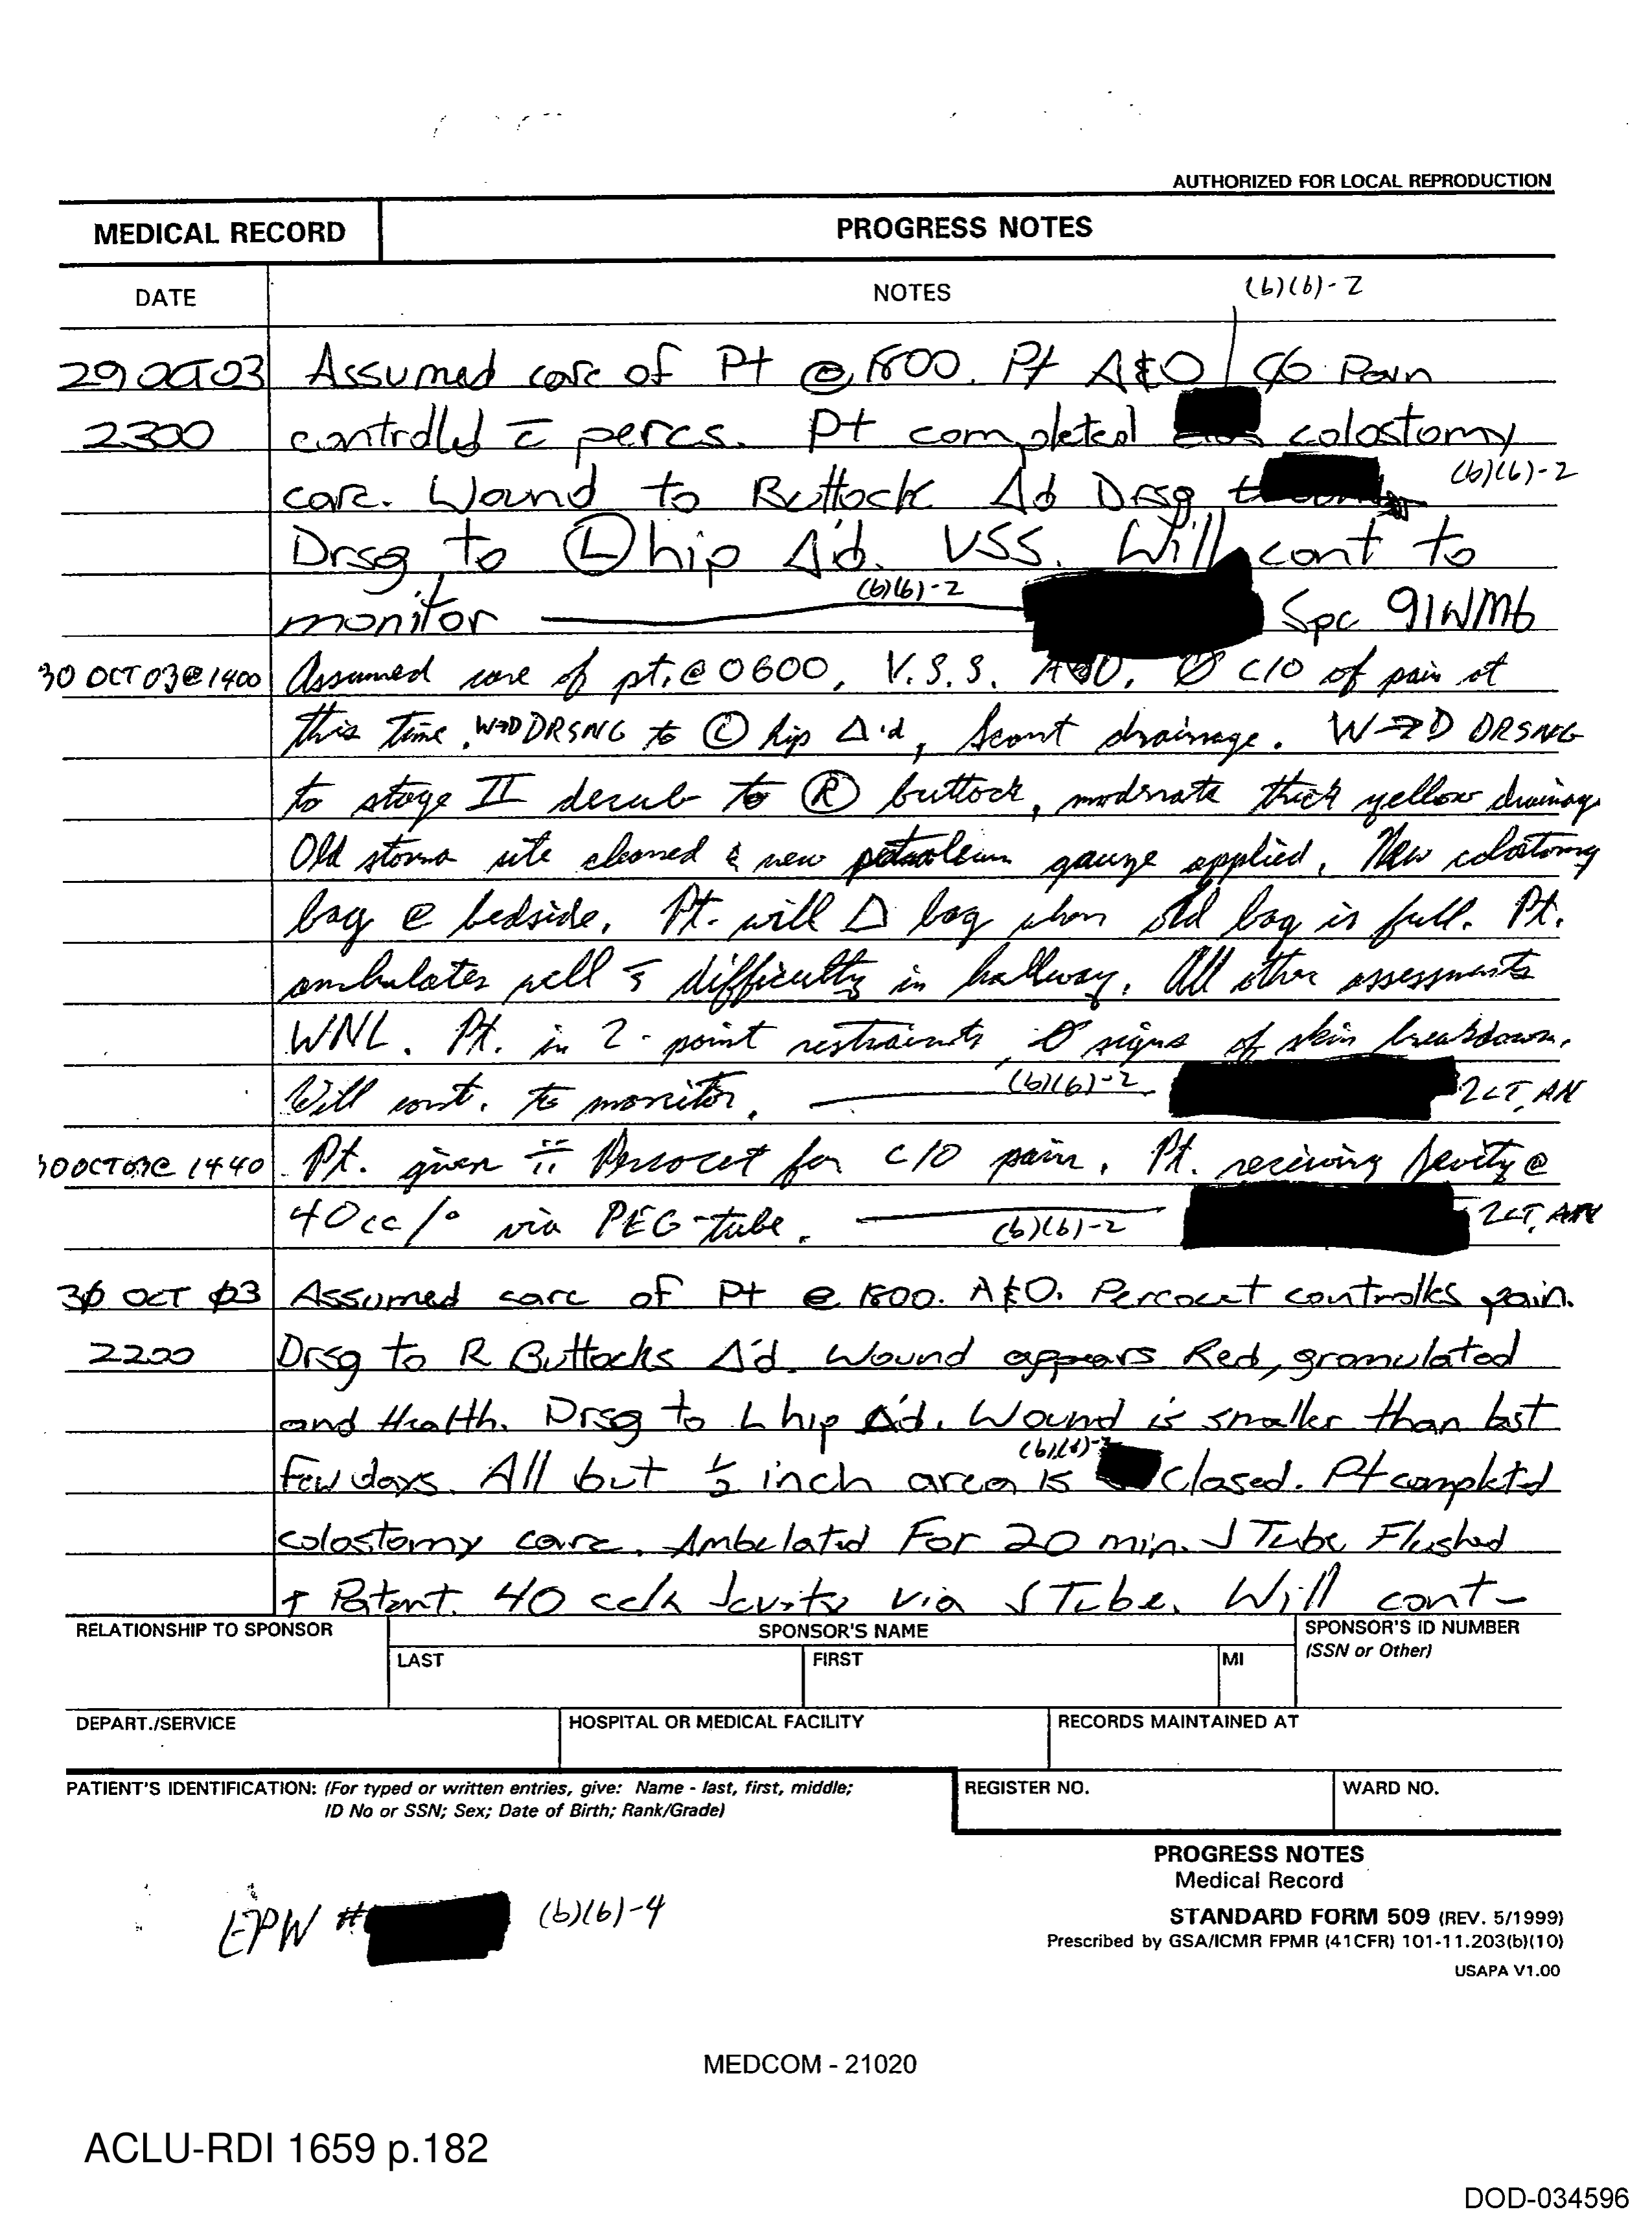 AUTHORIZED FOR LOCAL REPRODUCTION
MEDICAL RECORD PROGRESS NOTES
DATE NOTES (b)(6)-2
29 OCT 03 Assumed care of Pt @ 1800. Pt A&O c/o Pain
2300 controlled c̄ percs. Pt completed colostomy
care. Wound to Buttock Δd Drsg (b)(6)-2
Drsg to Ⓛ hip Δ'd. VSS. Will cont to
monitor (b)(6)-2 Spc 91WM6
30 OCT 03 @ 1400 Assumed care of pt. @ 0600, V.S.S. A&O, Ø C/O of pain at
this time. W→D DRSNG to Ⓛ hip Δ'd, Scant drainage. W→D DRSNG
to stage II decub to Ⓡ buttock, moderate thick yellow drainage
Old stoma site cleaned & new petroleum gauze applied. New colostomy
bag @ bedside. Pt. will Δ bag when old bag is full. Pt.
ambulates well s̄ difficulty in hallway. All other assessments
WNL. Pt. in 2-point restraints, Ø signs of skin breakdown.
Will cont. to monitor. (b)(6)-2 2LT, AN
30 OCT 03 @ 1440 Pt. given ii Percocet for C/O pain. Pt. receiving Jevity @
40cc/° via PEG-tube. (b)(6)-2 2LT, AN
30 OCT 03 Assumed care of Pt @ 1800. A&O. Percocet controlls pain.
2200 Drsg to R Buttocks Δ'd. Wound appears Red, granulated
and Health. Drsg to L hip Δ'd. Wound is smaller than last
Few days. All but ½ inch area is (b)(6)-2 Closed. Pt completd
colostomy care. Ambulated For 20 min. J Tube Flushed
+ Patent. 40 cc/h Jevity via J Tube. Will cont-
RELATIONSHIP TO SPONSOR SPONSOR'S NAME SPONSOR'S ID NUMBER
LAST FIRST MI (SSN or Other)
DEPART./SERVICE HOSPITAL OR MEDICAL FACILITY RECORDS MAINTAINED AT
PATIENT'S IDENTIFICATION: (For typed or written entries, give: Name - last, first, middle; REGISTER NO. WARD NO.
ID No or SSN; Sex; Date of Birth; Rank/Grade)
PROGRESS NOTES
Medical Record
EPW # (b)(6)-4
STANDARD FORM 509 (REV. 5/1999)
Prescribed by GSA/ICMR FPMR (41CFR) 101-11.203(b)(10)
USAPA V1.00
MEDCOM - 21020
ACLU-RDI 1659 p.182
DOD-034596